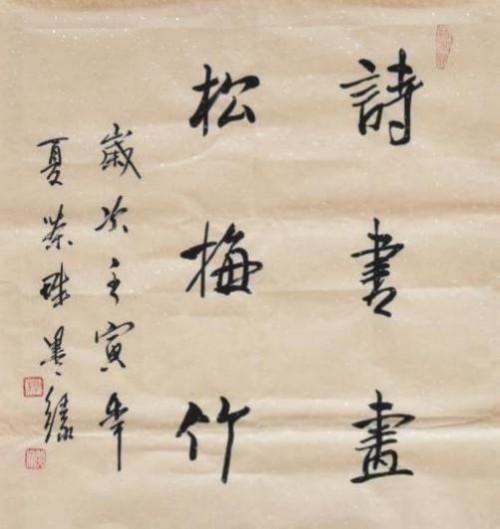 詩書畫
松梅竹
歲次壬寅年
夏榮珠墨緣